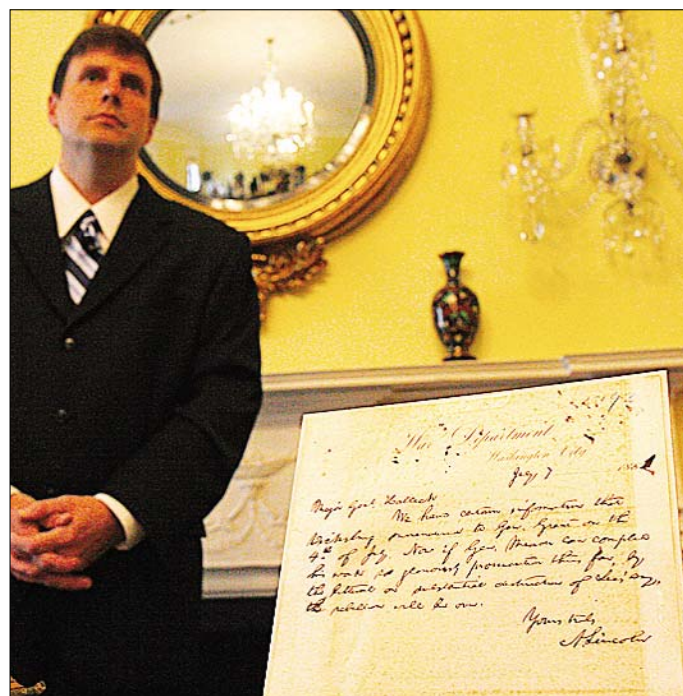 War Department
Washington City
July 7
Major Genl. Halleck
We have certain information that
Vicksburg surrendered to Gen. Grant on the
4th of July. Now if Gen. Meade can complete
his work so gloriously prosecuted thus far, by
the literal or substantial destruction of Lee's army,
the rebellion will be over.
Yours truly
A. Lincoln